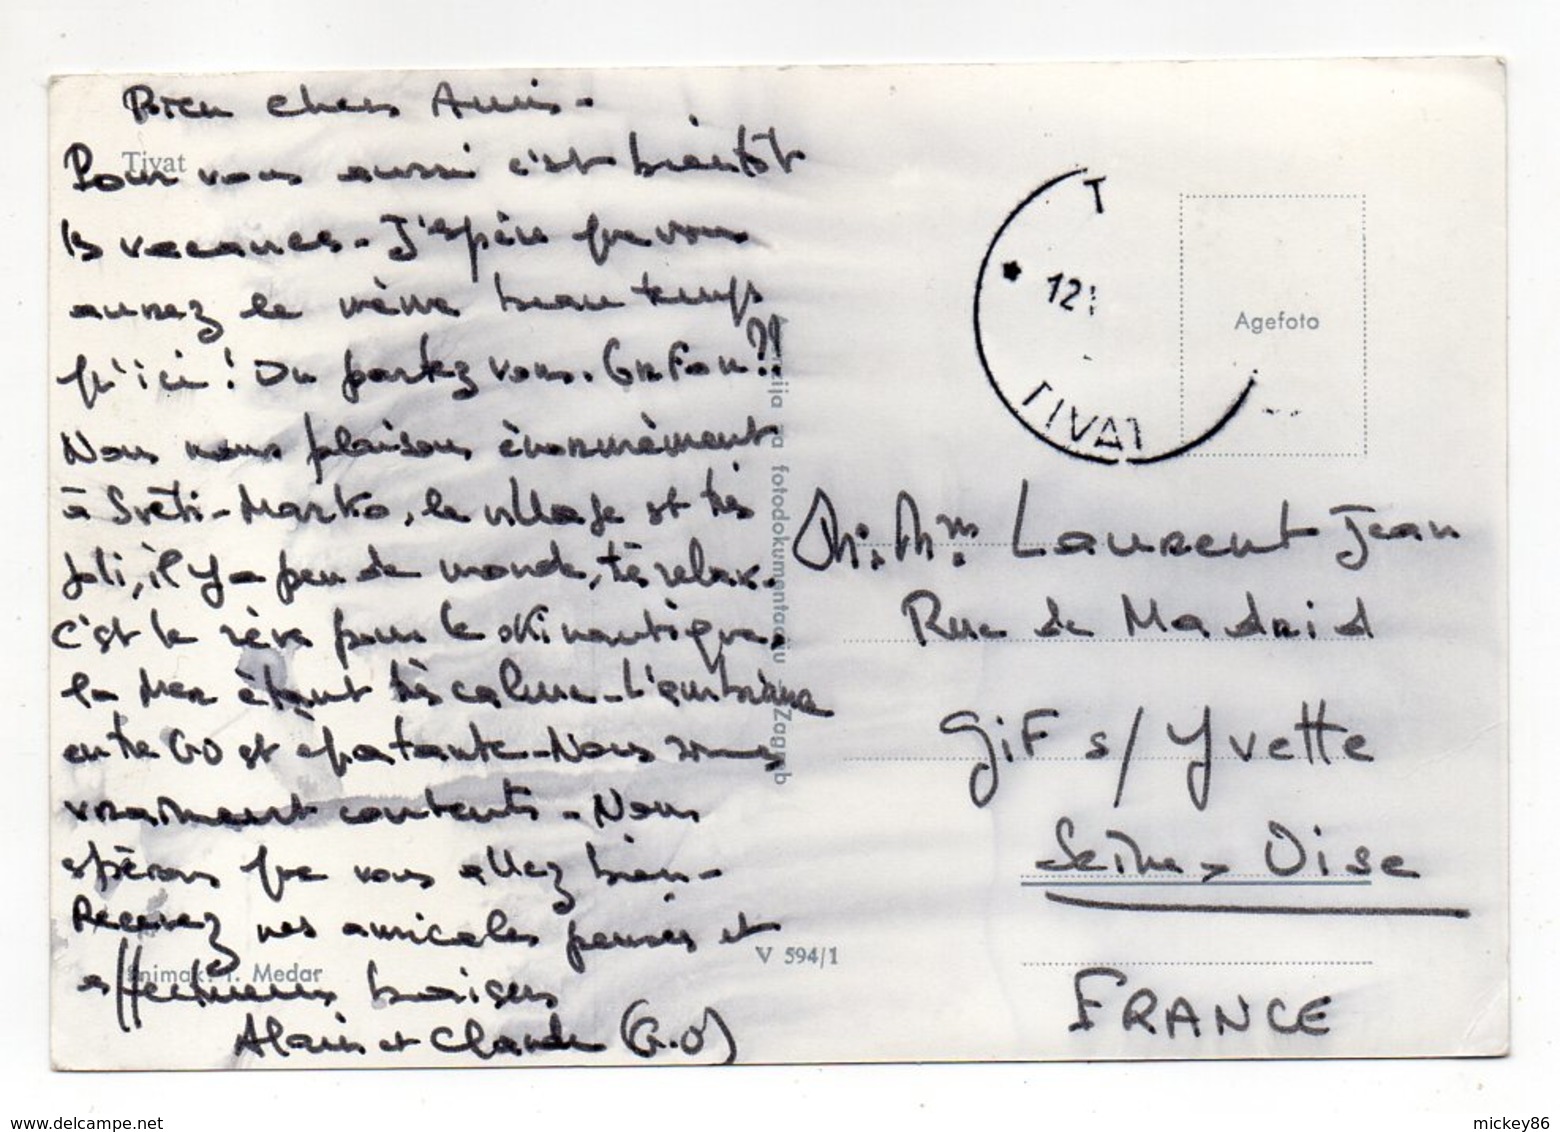 Bien chers Amis -
Tivat
Pour vous aussi c'est bientôt
les vacances - J'espère que vous
aurez le même beau temps
qu'ici ! Ou partez vous.
Nous nous plaisons énormément
à Svèti-Marko, le village est très
joli, il y a peu de monde, très relax.
C'est le rêve pour le ski nautique,
la Mer étant très calme - L'ambiance
entre GO est épatante - Nous sommes
vraiment contents - Nous
espérons que vous allez bien -
Recevez nos amicales pensées et
affectueux baisers
Alain et Claude (G.O)
Snimak: T. Medar
Agencija za fotodokumentaciju Zagreb
V 594/1
T
* 12
TIVAT
Agefoto
M. Mm. Laurent Jean
Rue de Madrid
Gif s/ Yvette
Seine & Oise
FRANCE
www.delcampe.net
mickey86